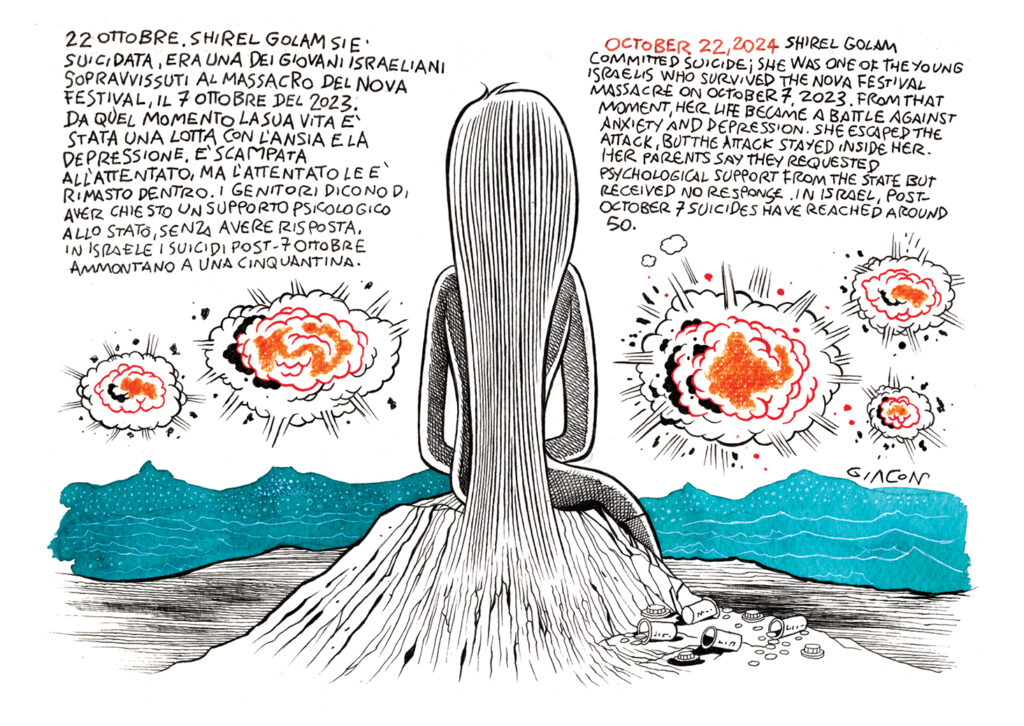 22 OTTOBRE. SHIREL GOLAM SI E'
SUICIDATA, ERA UNA DEI GIOVANI ISRAELIANI
SOPRAVVISSUTI AL MASSACRO DEL NOVA
FESTIVAL, IL 7 OTTOBRE DEL 2023.
DA QUEL MOMENTO LA SUA VITA E'
STATA UNA LOTTA CON L'ANSIA E LA
DEPRESSIONE. E' SCAMPATA
ALL'ATTENTATO, MA L'ATTENTATO LE E'
RIMASTO DENTRO. I GENITORI DICONO DI
AVER CHIESTO UN SUPPORTO PSICOLOGICO
ALLO STATO, SENZA AVERE RISPOSTA.
IN ISRAELE I SUICIDI POST-7 OTTOBRE
AMMONTANO A UNA CINQUANTINA.
OCTOBER 22, 2024 SHIREL GOLAM
COMMITTED SUICIDE; SHE WAS ONE OF THE YOUNG
ISRAELIS WHO SURVIVED THE NOVA FESTIVAL
MASSACRE ON OCTOBER 7, 2023. FROM THAT
MOMENT, HER LIFE BECAME A BATTLE AGAINST
ANXIETY AND DEPRESSION. SHE ESCAPED THE
ATTACK, BUT THE ATTACK STAYED INSIDE HER.
HER PARENTS SAY THEY REQUESTED
PSYCHOLOGICAL SUPPORT FROM THE STATE BUT
RECEIVED NO RESPONSE. IN ISRAEL, POST-
OCTOBER 7 SUICIDES HAVE REACHED AROUND
50.
GIACON